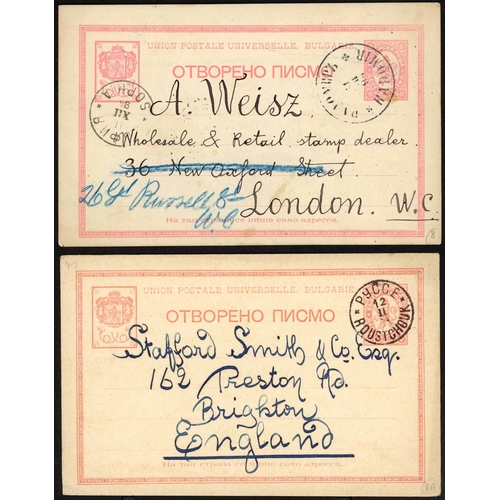 UNION POSTALE UNIVERSELLE, BULGARIE
ОТВОРЕНО ПИСМО
СОФИЯ SOPHIA
XII
A. Weisz
Wholesale & Retail stamp dealer
36 New Oxford Street.
26 Gt Russell St
W.C
London. W.C.
На тази страна се пише само адресса.
UNION POSTALE UNIVERSELLE, BULGARIE
ОТВОРЕНО ПИСМО
РУССЕ
12
II
ROUSTCHOUK
Stafford Smith & Co. Esq.
162 Preston Rd.
Brighton
England
На тази страна се пише само адресса.